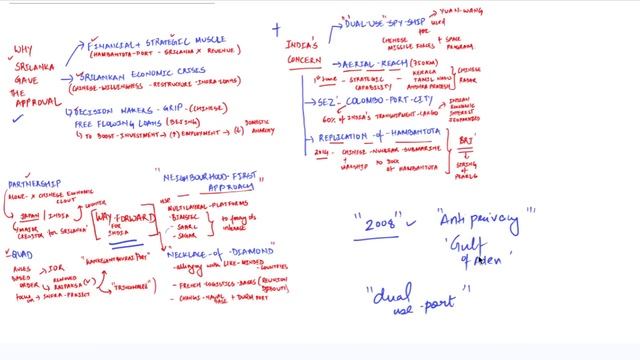 WHY
SRILANKA
GAVE
THE
APPROVAL
FINANCIAL + STRATEGIC MUSCLE
(HAMBANTOTA-PORT - SRILANKA X REVENUE)
SRILANKAN ECONOMIC CRISES
(CHINESE-WILLINGNESS - RESTRUCTURE-INFRA-LOANS)
DECISION MAKERS - GRIP - (CHINESE)
FREE FLOWING LOANS (BEIJING)
TO BOOST-INVESTMENT → (↑) EMPLOYMENT → (↓) DOMESTIC ANARCHY
+
INDIA'S
CONCERN
"DUAL-USE" SPY SHIP
YUAN-WANG
used
for
CHINESE
MISSILE FORCES + SPACE
PROGRAM
AERIAL-REACH (750KM)
STRATEGIC
CAPABILITY
KERALA
TAMIL NADU
ANDHRA PRADESH
CHINESE
RADAR
SEZ - COLOMBO-PORT-CITY
60% OF INDIA'S TRANSSHIPMENT-CARGO
INDIAN
ECONOMIC
INTEREST
JEOPARDISED
REPLICATION of HAMBANTOTA
2014 - CHINESE-NUCLEAR-SUBMARINE
+
WARSHIP TO DOCK
OF HAMBANTOTA
BRI
STRING
of
PEARLS
PARTNERSHIP
ALONE X CHINESE ECONOMIC
CLOUT
COUNTER
JAPAN / INDIA
"MAJOR
CREDITOR FOR SRILANKA"
WAY-FORWARD
FOR
INDIA
"NEIGHBOURHOOD-FIRST
APPROACH"
USE
MULTILATERAL-PLATFORMS
- BIMSTEC
- SAARC
- SAGAR
QUAD
RULES
BASED
ORDER
IOR
REMOVED
RAJPAKSA
FOCUS ON → INFRA-PROJECT
"TRINCOMALEE"
NECKLACE-OF-DIAMOND
- aligning with LIKE-MINDED
COUNTRIES
- FRENCH-LOGISTICS-BASES (REUNION
DJIBOUTI)
- CHANGI-NAVAL
BASE + DUQM PORT
"2008" "Anti piracy"
'Gulf
of Aden'
"dual
use-port"